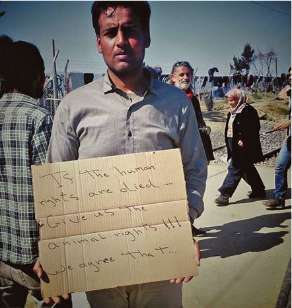 Is the human
rights are died...
Give as the
animal rights!!!
we agree that...